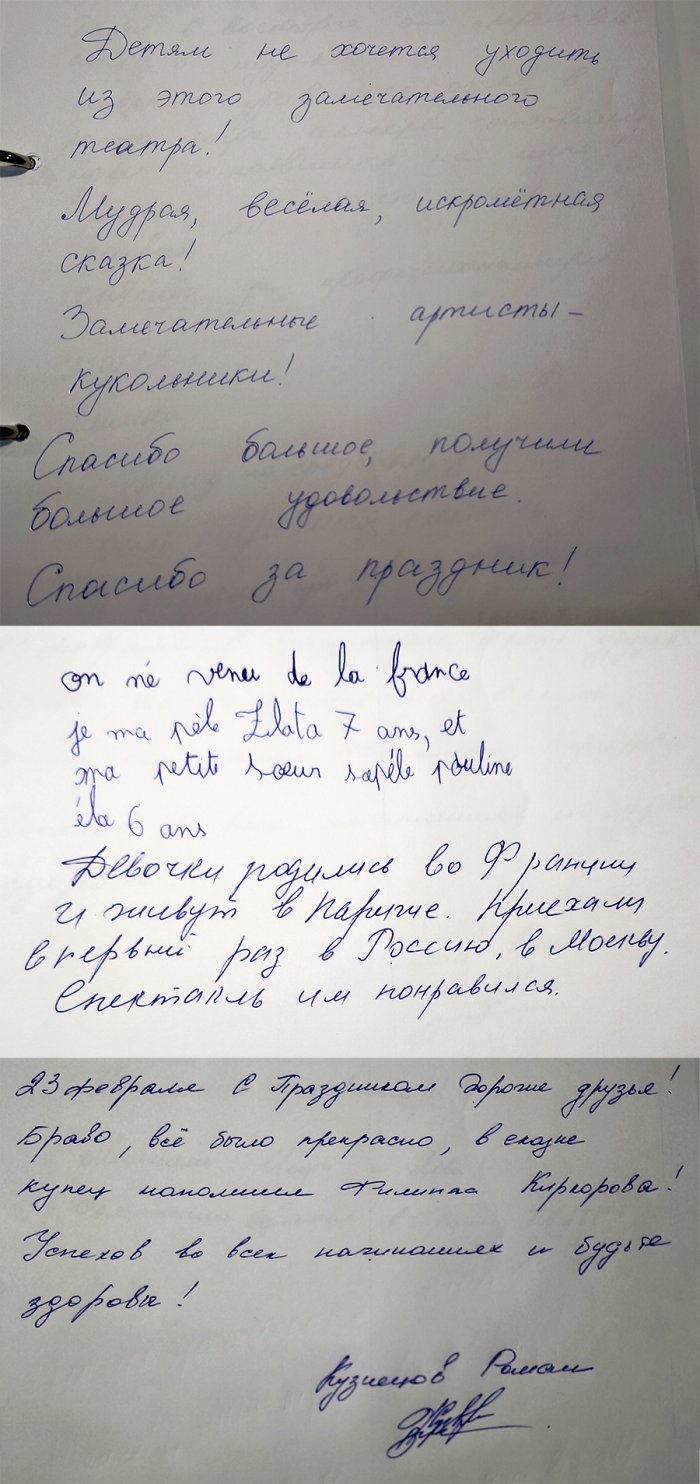 Детям не хочется уходить
из этого замечательного
театра!
Мудрая, весёлая, искромётная
сказка!
Замечательные артисты-
кукольники!
Спасибо большое, получили
большое удовольствие.
Спасибо за праздник!
on né venu de la france
je ma pèle Zlata 7 ans, et
ma petite sœur sapéle pouline
éla 6 ans
Девочки родились во Франции
и живут в Париже. Приехали
впервый раз в Россию, в Москву.
Спектакль им понравился.
23 февраля С Праздником дорогие друзья!
Браво, всё было прекрасно, в сказке
купец напомнил Филиппа Киркорова!
Успехов во всех начинаниях и будьте
здоровы!
Кузнецов Роман